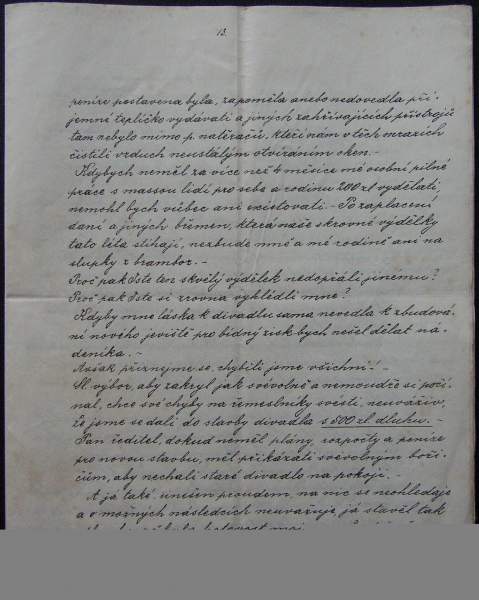 13.
peníze postavena byla, zapoměla anebo nedovedla pří-
jemné teplíčko vydávati a jiných zahřívajících přístrojů
tam nebylo mimo p. natěračů, kteří nám v těch mrazích
čistili vzduch neustálým otvíráním oken. -
Kdybych neměl za více než 4 měsíce mé osobní pilné
práce s massou lidí pro sebe a rodinu 200 zl vydělati,
nemohl bych vůbec ani existovati. - Po zaplacení
daní a jiných břemen, která naše skrovné výdělky
tato léta stíhají, nezbude mně a mé rodině ani na
slupky z brambor. -
Proč pak Jste ten skvělý výdělek nedopřáli jinému?
Proč pak Jste si zrovna vyhlédli mne?
Kdyby mne láska k divadlu sama nevedla k zbudová-
ní nového jeviště pro bídný zisk bych nešel dělat ná-
deníka. -
Avšak přiznejme se, chybili jsme všichni! -
Sl. výbor, aby zakryl jak svévolně a nemoudře si počí-
nal, chce své chyby na řemeslníky svésti, neuváživ,
že jsme se dali do stavby divadla s 500 zl dluhu. -
Pan ředitel, dokud neměl plány, rozpočty a peníze
pro novou stavbu, měl přikázati svévolným boři-
čům, aby nechali staré divadlo na pokoji. -
A já také, unešen proudem, na nic se neohlédaje
a o možných následcích neuvažuje, já stavěl tak